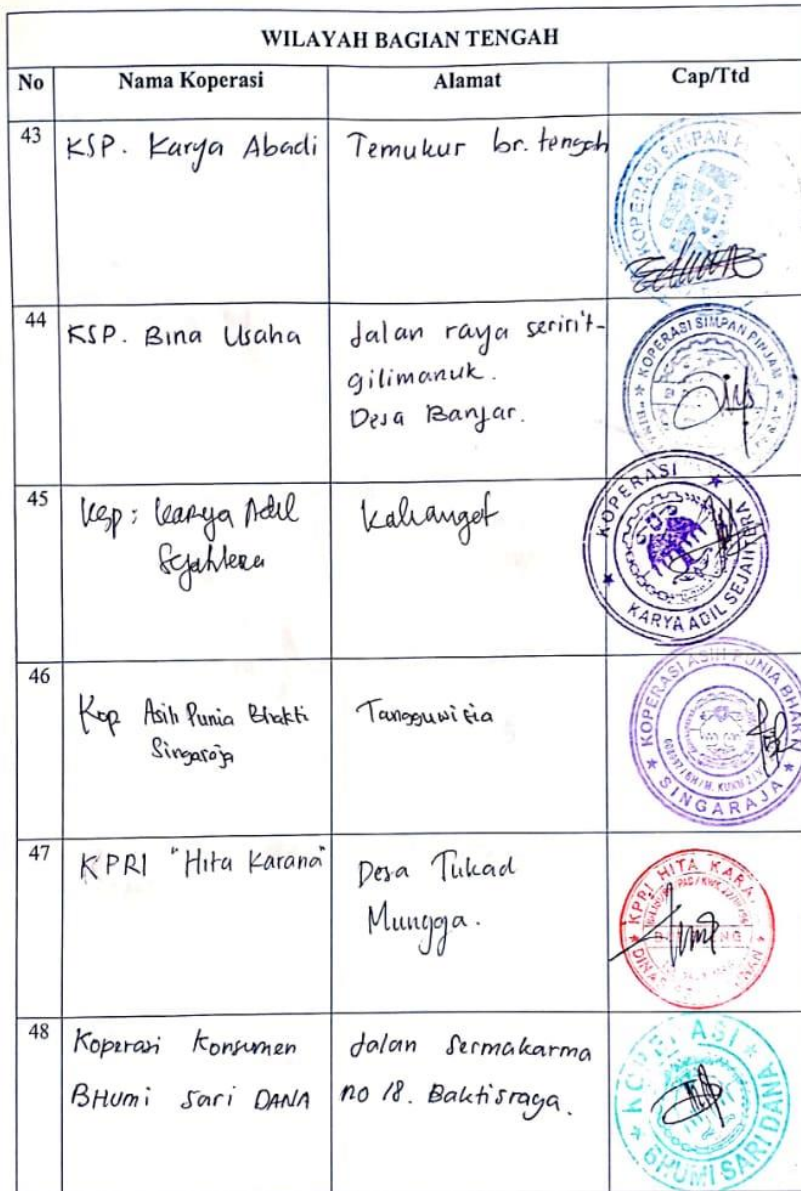 WILAYAH BAGIAN TENGAH
No Nama Koperasi Alamat Cap/Ttd
43 KSP. Karya Abadi Temukur br. tengah
KOPERASI SIMPAN
44 KSP. Bina Usaha Jalan raya seririt-
gilimanuk.
Desa Banjar.
KOPERASI SIMPAN PINJAM
45 Ksp: Karya Adil Kalianget
Sejahtera
KOPERASI
KARYA ADIL SEJAHTERA
46 Kop Asih Punia Bhakti Tangguwisia
Singaraja
KOPERASI ASIH PUNIA BHAKTI
SINGARAJA
47 KPRI "Hita Karana" Desa Tukad
Mungga.
KPRI HITA KARA
DINAS
48 Koperasi Konsumen Jalan Sermakarma
BHumi Sari DANA no 18. Baktisraga.
KOPERASI
BHUMI SARI DANA